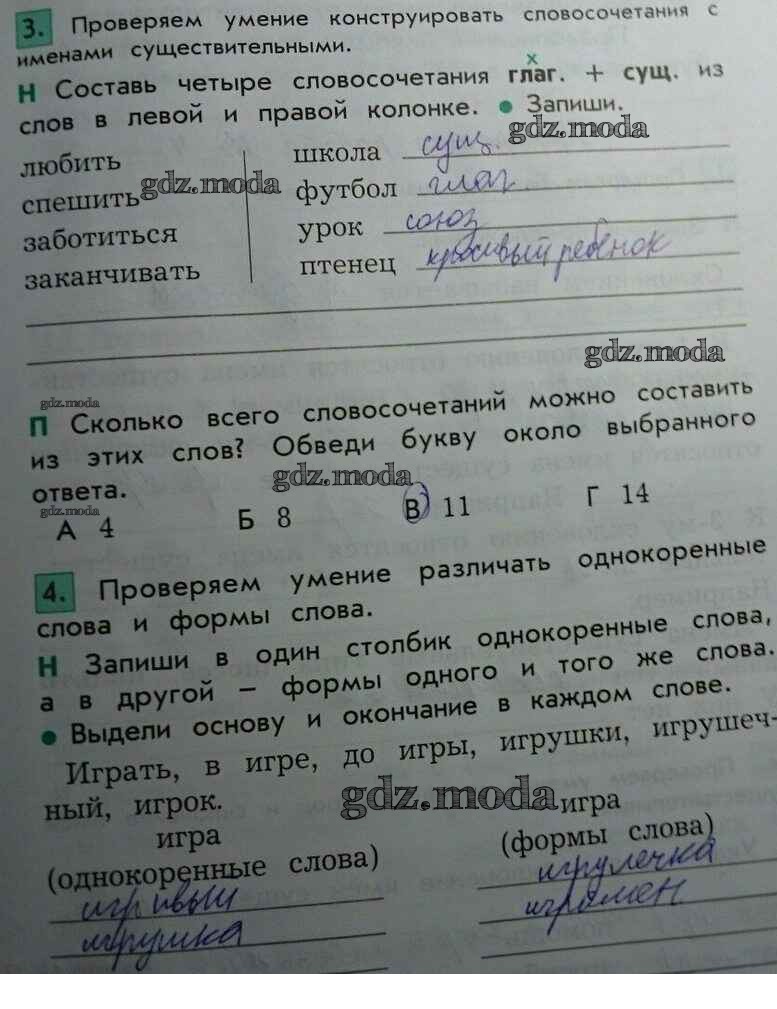 3. Проверяем умение конструировать словосочетания с
именами существительными.
х
Н Составь четыре словосочетания глаг. + сущ. из
слов в левой и правой колонке. • Запиши.
gdz.moda
любить школа сущ.
спешить gdz.moda футбол глаг
заботиться урок союз
заканчивать птенец красивый ребёнок
gdz.moda
gdz.moda
П Сколько всего словосочетаний можно составить
из этих слов? Обведи букву около выбранного
ответа. gdz.moda
gdz.moda
А 4 Б 8 В 11 Г 14
4. Проверяем умение различать однокоренные
слова и формы слова.
Н Запиши в один столбик однокоренные слова,
а в другой – формы одного и того же слова.
• Выдели основу и окончание в каждом слове.
Играть, в игре, до игры, игрушки, игрушеч-
ный, игрок. gdz.moda
игра игра
(однокоренные слова) (формы слова)
игривый игрулечка
игрушка игромен